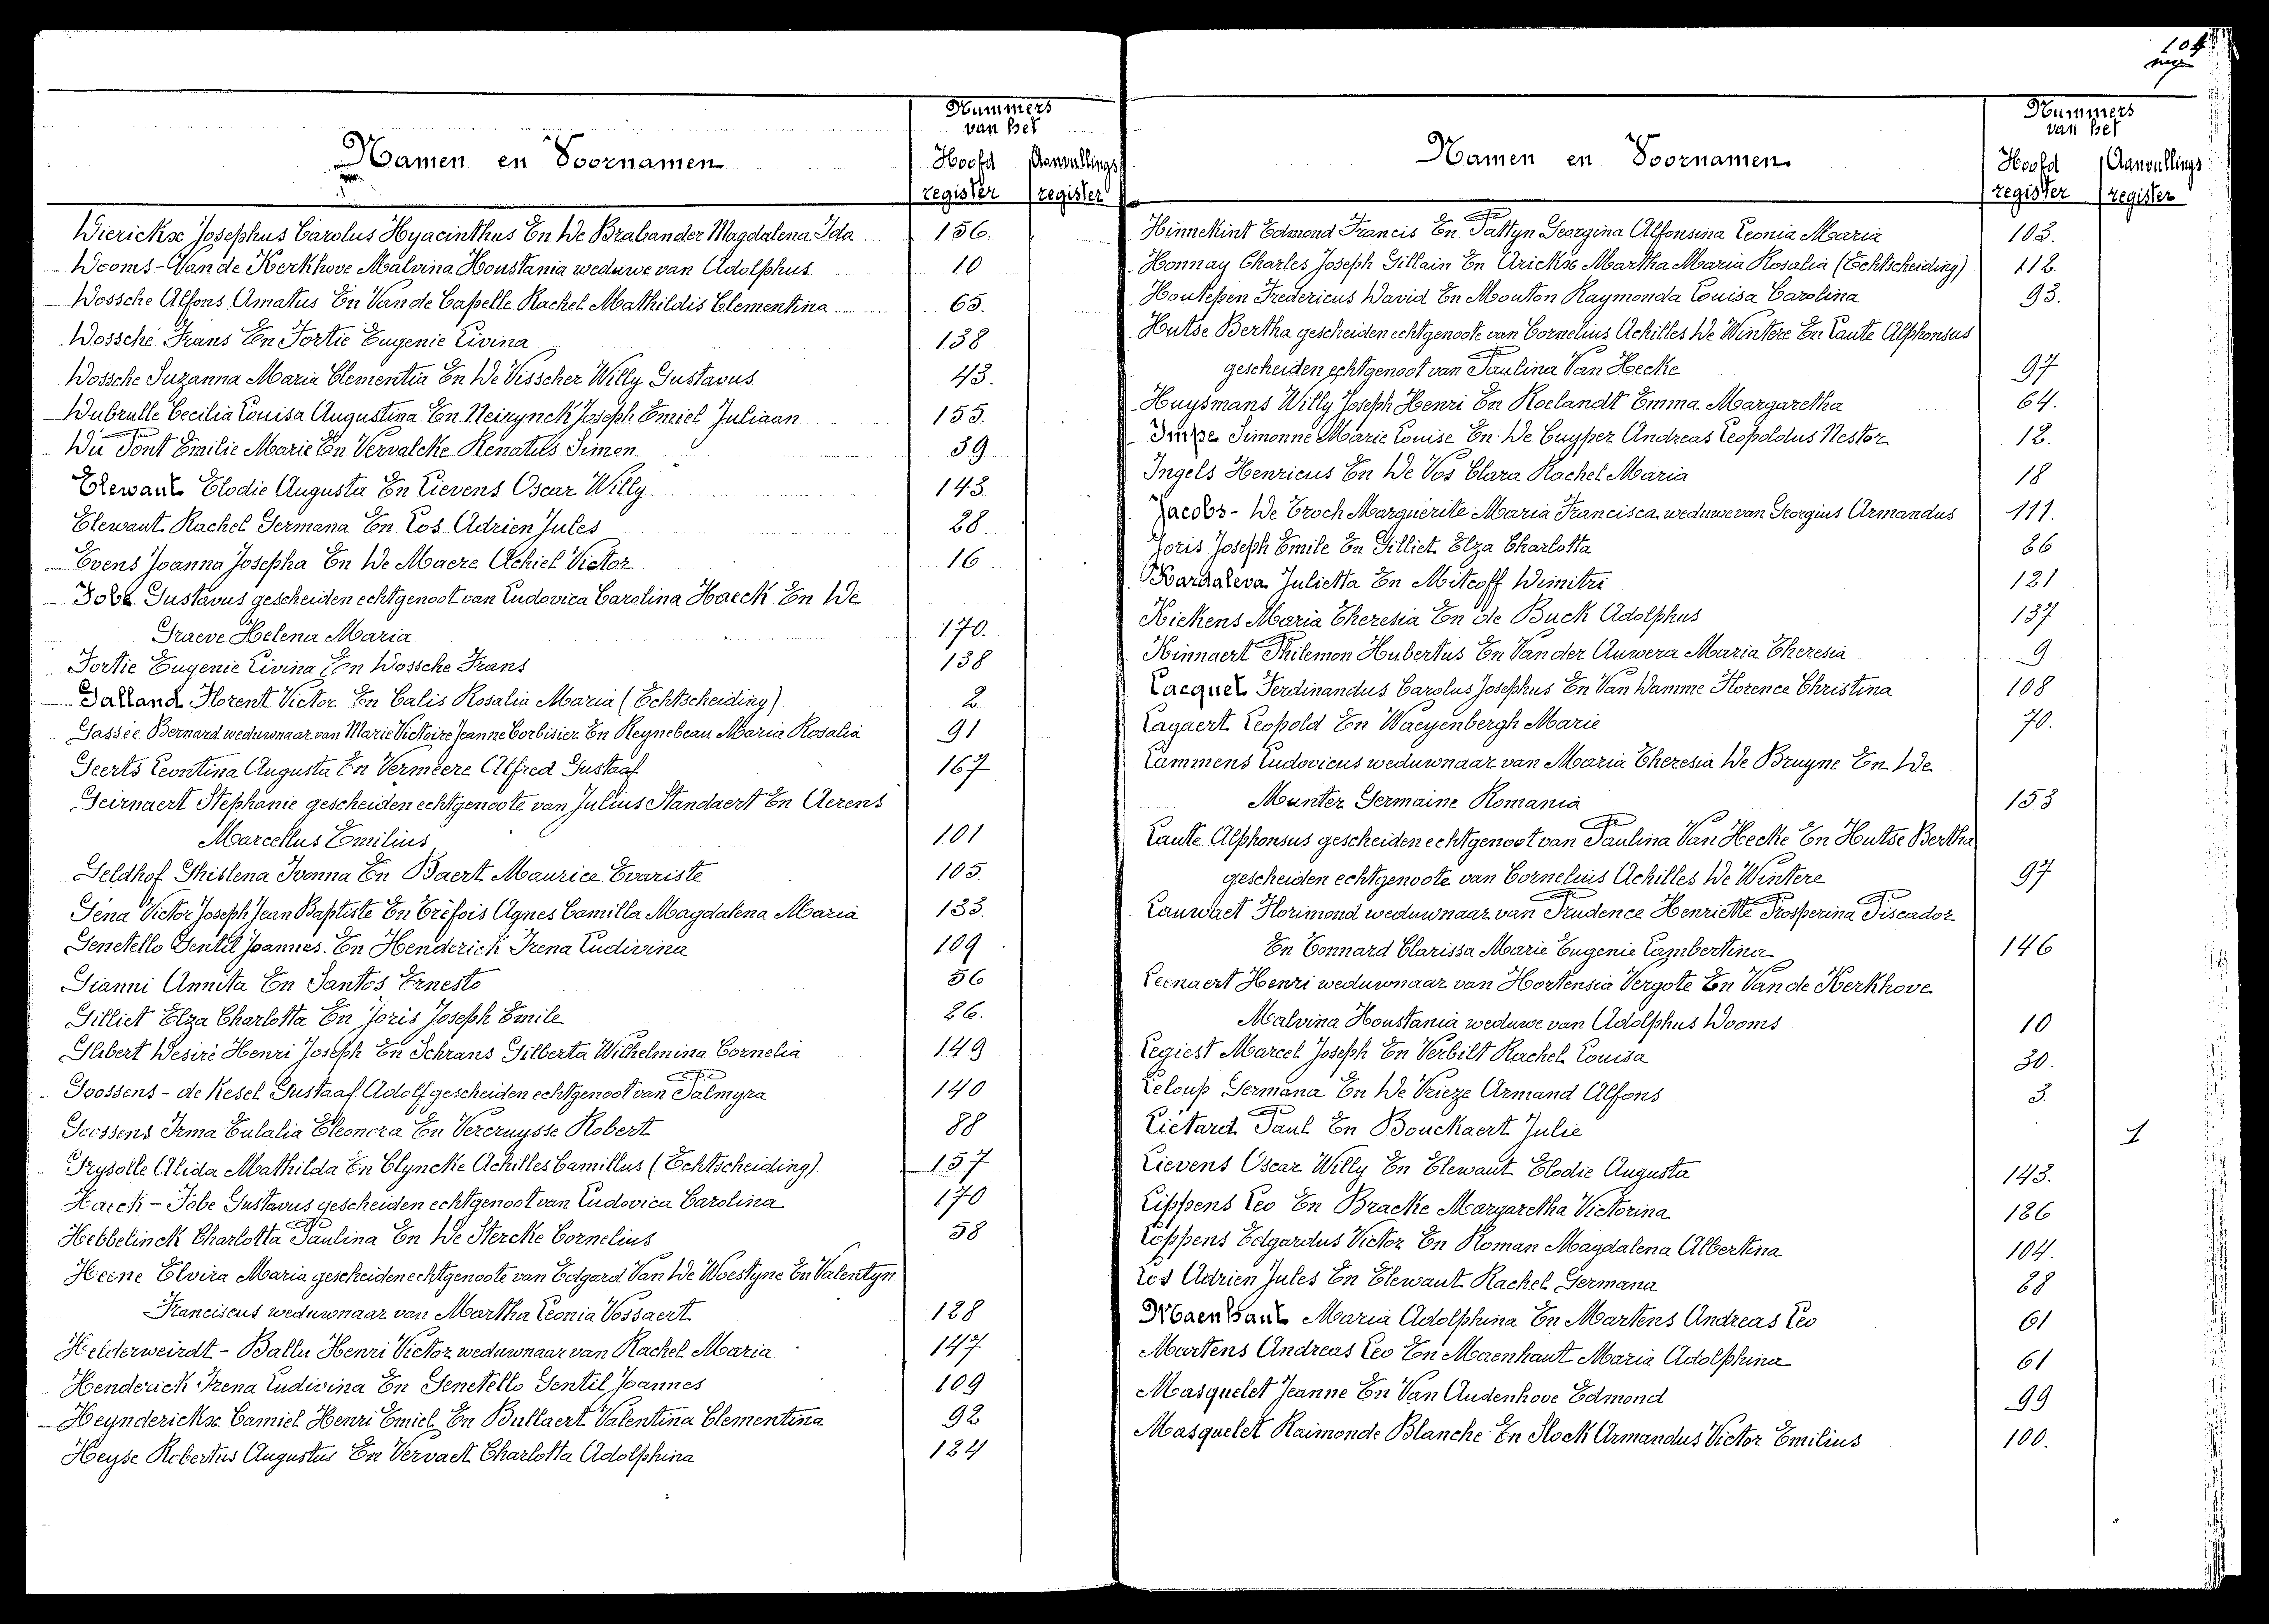 104
Namen en Voornamen
Nummers
van het
Hoofd
register
Aanvullings
register
Dierickx Josephus Carolus Hyacinthus En De Brabander Magdalena Ida 156.
Dooms-Van de Kerkhove Malvina Houstania weduwe van Adolphus 10
Dossche Alfons Amatus En Van de Capelle Rachel Mathildis Clementina 65.
Dossché Frans En Fortie Eugenie Livina 138
Dossche Suzanna Maria Clementia En De Visscher Willy Gustavus 43.
Dubrulle Cecilia Louisa Augustina En Neirynck Joseph Emiel Juliaan 155.
Du Pont Emilie Marie En Vervalcke Renatus Simon 39
Elewaut Elodie Augusta En Lievens Oscar Willy 143
Elewaut Rachel Germana En Los Adrien Jules 28
Evens Joanna Josepha En De Maere Achiel Victor 16
Fobe Gustavus gescheiden echtgenoot van Ludovica Carolina Haeck En De
Graeve Helena Maria 170.
Fortie Eugenie Livina En Dossche Frans 138
Galland Florent Victor En Calis Rosalia Maria (Echtscheiding) 2
Gassée Bernard weduwnaar van Marie Victoire Jeanne Corbisier En Reynebeau Maria Rosalia 91
Geerts Leontina Augusta En Vermeere Alfred Gustaaf 167
Geirnaert Stephanie gescheiden echtgenoote van Julius Standaert En Aerens
Marcellus Emilius 101
Geldhof Ghislena Ivonna En Baert Maurice Evariste 105.
Géna Victor Joseph Jean Baptiste En Tréfois Agnes Camilla Magdalena Maria 133.
Genetello Gentil Joannes En Henderick Irena Ludivina 109
Gianni Annita En Santos Ernesto 56
Gilliet Elza Charlotta En Joris Joseph Emile 26.
Glibert Desiré Henri Joseph En Schrans Gilberta Wilhelmina Cornelia 149
Goossens - de Kesel Gustaaf Adolf gescheiden echtgenoot van Palmyra 140
Goossens Irma Eulalia Eleonora En Vercruysse Robert 88
Grysolle Alida Mathilda En Clyncke Achilles Camillus (Echtscheiding) 157
Haeck - Fobe Gustavus gescheiden echtgenoot van Ludovica Carolina 170
Hebbelinck Charlotta Paulina En De Stercke Cornelius 58
Heene Elvira Maria gescheiden echtgenoote van Edgard Van De Woestyne En Valentyn
Franciscus weduwnaar van Martha Leonia Vossaert 128
Helderweirdt - Ballu Henri Victor weduwnaar van Rachel Maria 147
Henderick Irena Ludivina En Genetello Gentil Joannes 109
Heynderickx Camiel Henri Emiel En Bullaert Valentina Clementina 92
Heyse Robertus Augustus En Vervaet Charlotta Adolphina 124
Namen en Voornamen
Nummers
van het
Hoofd
register
Aanvullings
register
Hinnekint Edmond Francis En Pattyn Georgina Alfonsina Leonia Maria 103.
Honnay Charles Joseph Gillain En Arickx Martha Maria Rosalia (Echtscheiding) 112.
Houtepen Fredericus David En Mouton Raymonda Louisa Carolina 93.
Hutse Bertha gescheiden echtgenoote van Cornelius Achilles De Wintere En Laute Alphonsus
gescheiden echtgenoot van Paulina Van Hecke 97
Huysmans Willy Joseph Henri En Roelandt Emma Margaretha 64.
Impe Simonne Marie Louise En De Cuyper Andreas Leopoldus Nestor 12.
Ingels Henricus En De Vos Clara Rachel Maria 18
Jacobs - De Troch Marguérite Maria Francisca weduwe van Georgius Armandus 111.
Joris Joseph Emile En Gilliet Elza Charlotta 26
Kardaleva Julietta En Mitcoff Dimitri 121
Kickens Maria Theresia En de Buck Adolphus 137
Kinnaert Philemon Hubertus En Van der Auwera Maria Theresia 9
Lacquet Ferdinandus Carolus Josephus En Van Damme Florence Christina 108
Lagaert Leopold En Waeyenbergh Marie 70.
Lammens Ludovicus weduwnaar van Maria Theresia De Bruyne En De
Munter Germaine Romania 153
Laute Alphonsus gescheiden echtgenoot van Paulina Van Hecke En Hutse Bertha
gescheiden echtgenoote van Cornelius Achilles De Wintere 97
Lauwaet Florimond weduwnaar van Prudence Henriette Prosperina Piscador
En Tonnard Clarissa Marie Eugenie Lambertina 146
Leenaert Henri weduwnaar van Hortensia Vergote En Van de Kerkhove
Malvina Houstania weduwe van Adolphus Dooms 10
Legiest Marcel Joseph En Verbilt Rachel Louisa 30.
Leloup Germana En De Vrieze Armand Alfons 3.
Liétard Paul En Bouckaert Julie 1
Lievens Oscar Willy En Elewaut Elodie Augusta 143.
Lippens Leo En Bracke Margaretha Victorina 126
Loppens Edgardus Victor En Roman Magdalena Albertina 104.
Los Adrien Jules En Elewaut Rachel Germana 28
Maenhaut Maria Adolphina En Martens Andreas Leo 61
Martens Andreas Leo En Maenhaut Maria Adolphina 61
Masquelet Jeanne En Van Audenhove Edmond 99
Masquelet Raimonde Blanche En Slock Armandus Victor Emilius 100.